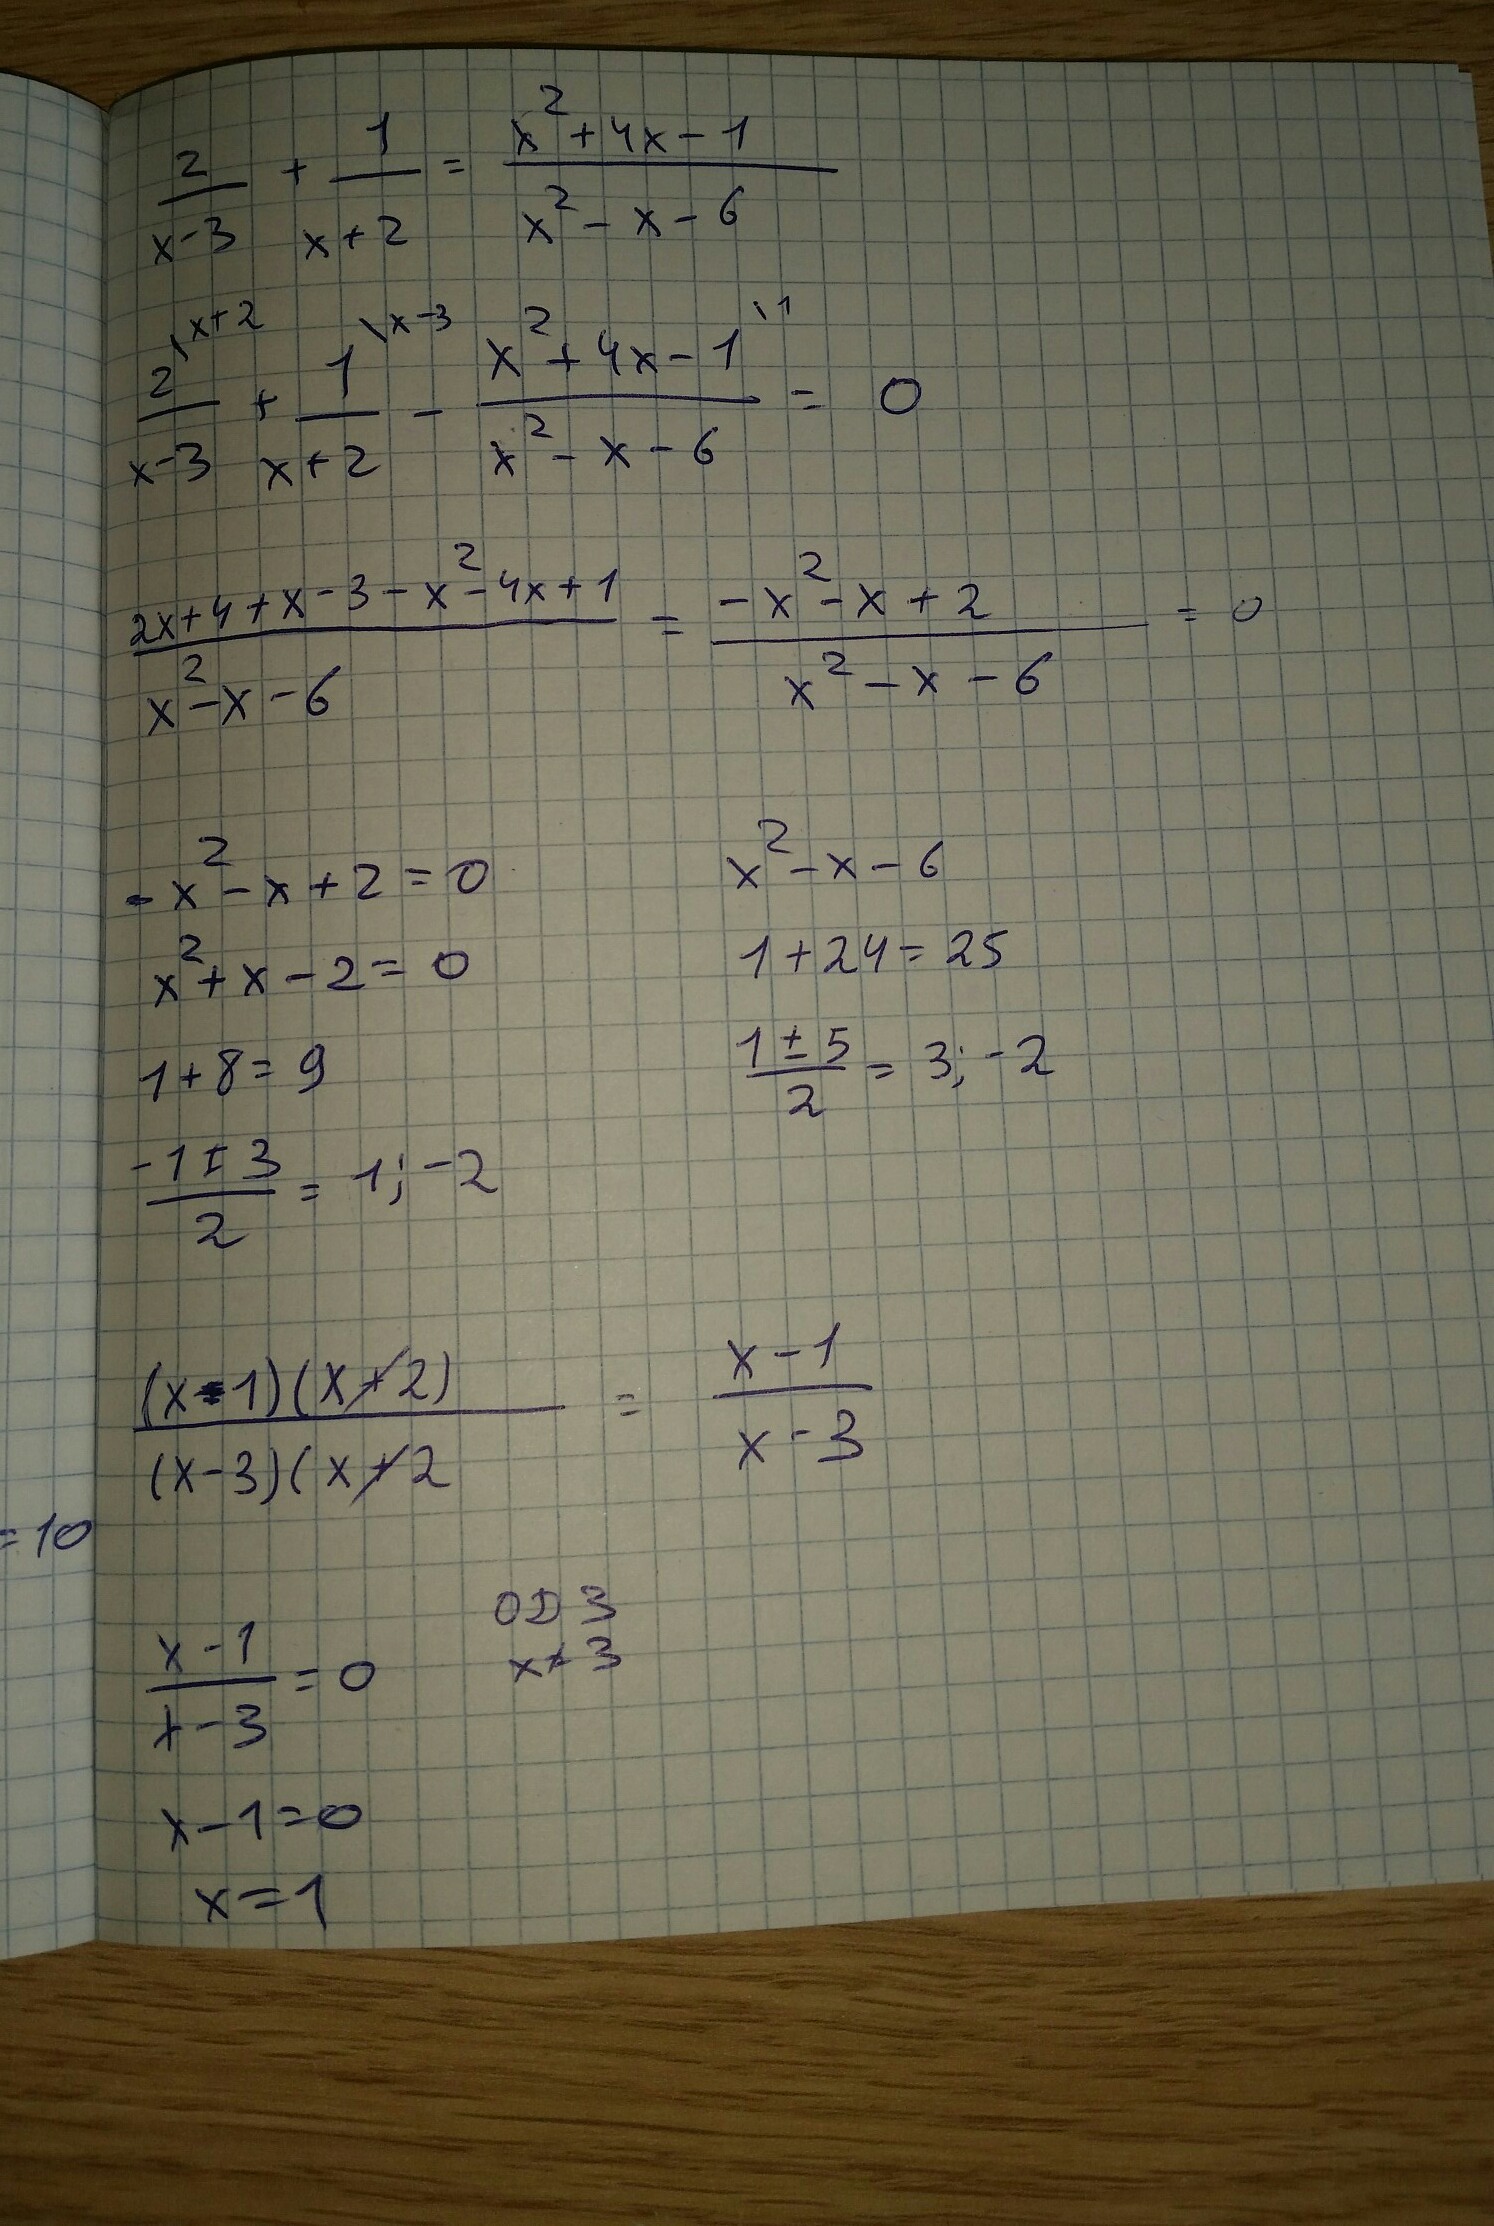 2/(x-3) + 1/(x+2) = (x²+4x-1)/(x²-x-6)
2\x+2/(x-3) + 1\x-3/(x+2) - (x²+4x-1)\1/(x²-x-6) = 0
(2x+4+x-3-x²-4x+1)/(x²-x-6) = (-x²-x+2)/(x²-x-6) = 0
-x²-x+2=0
x²+x-2=0
1+8=9
(-1±3)/2 = 1; -2
x²-x-6
1+24=25
(1±5)/2 = 3; -2
(x-1)(x+2)/(x-3)(x+2 = (x-1)/(x-3)
=10
(x-1)/(x-3) = 0
ОДЗ
x≠3
x-1=0
x=1